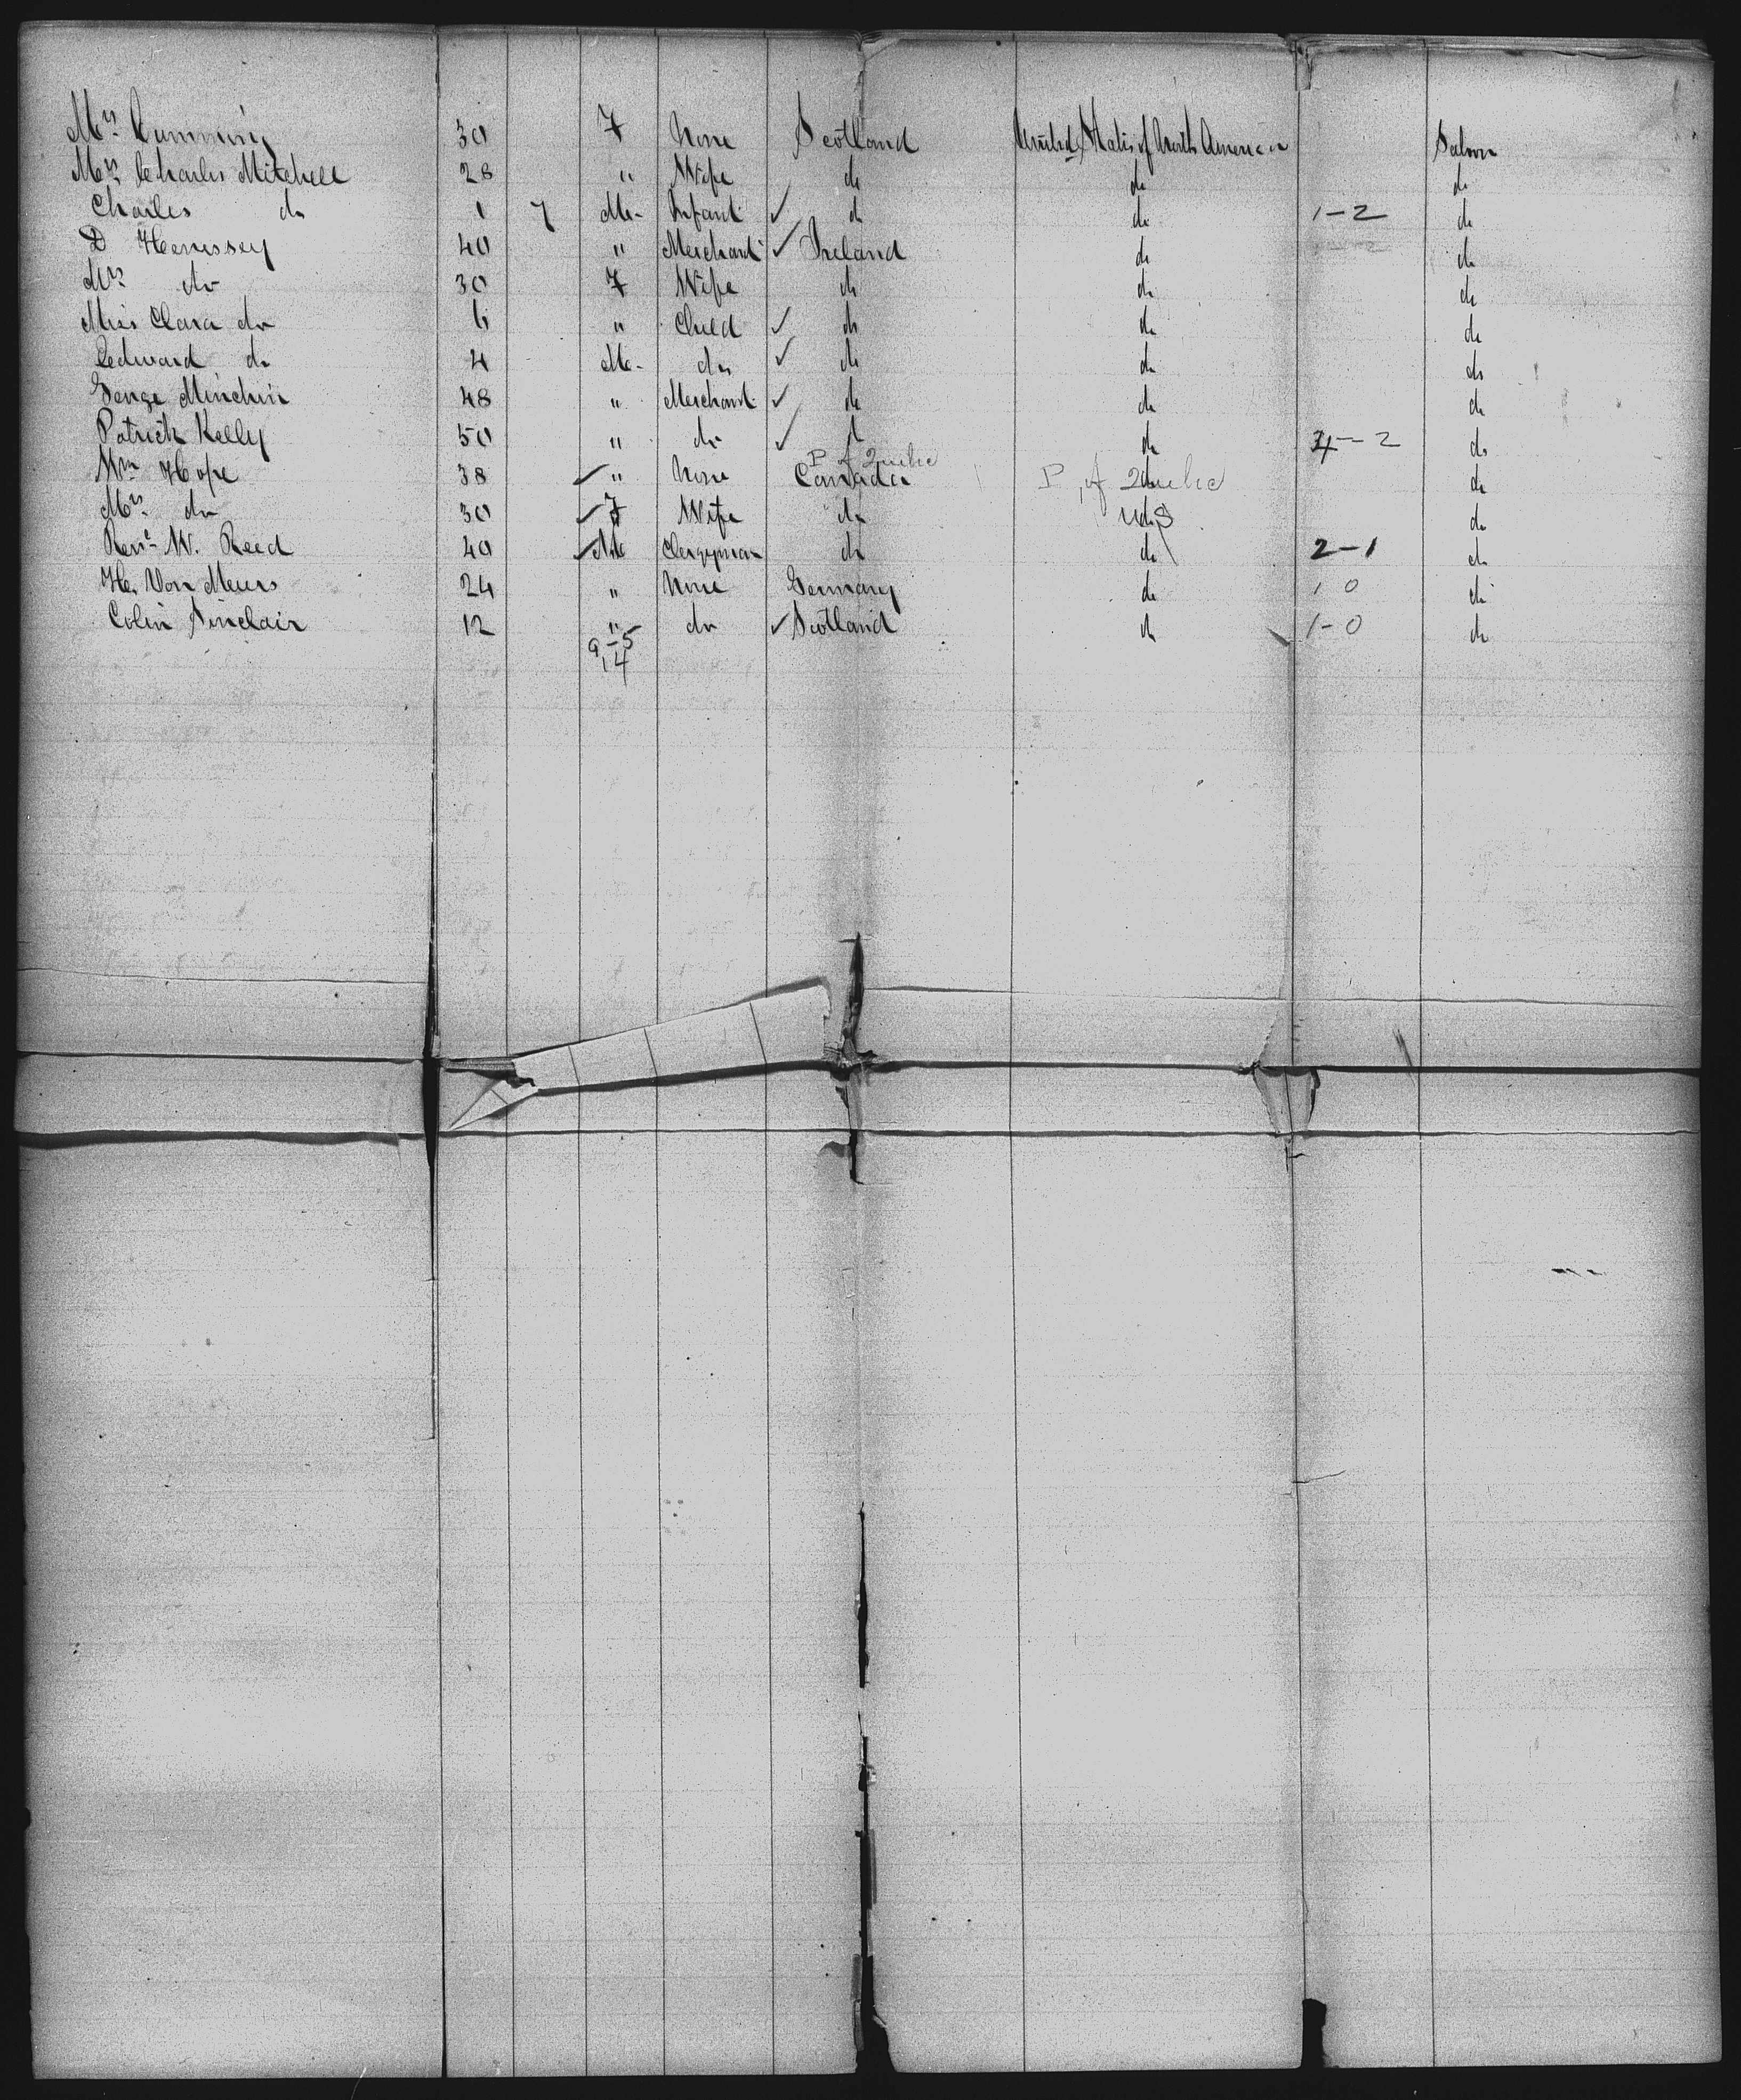 Mrs. Cumming 30 F None Scotland United States of North America Saloon
Mrs. Charles Mitchell 28 " Wife do do do
Charles do 1 7 Me- Infant ✓ do do 1-2 do
D Henessey 40 " Merchant ✓ Ireland do do
Mrs do 30 F Wife do do do
Miss Clara do 6 " Child ✓ do do do
Edward do 4 Me- do ✓ do do do
George Minchin 48 " Merchant ✓ do do do
Patrick Kelly 50 " do ✓ do do - 2 do
P of Quebec
Wm Hope 38 ✓ " None Canada P of Quebec do
Mrs. do 30 ✓ F Wife do U S do
Revd. W. Reed 40 ✓ Me Clergyman do do 2-1 do
H. Von Meurs 24 " None Germany do 1 0 do
Colin Sinclair 12 " do ✓ Scotland do 1-0 do
9-5
14